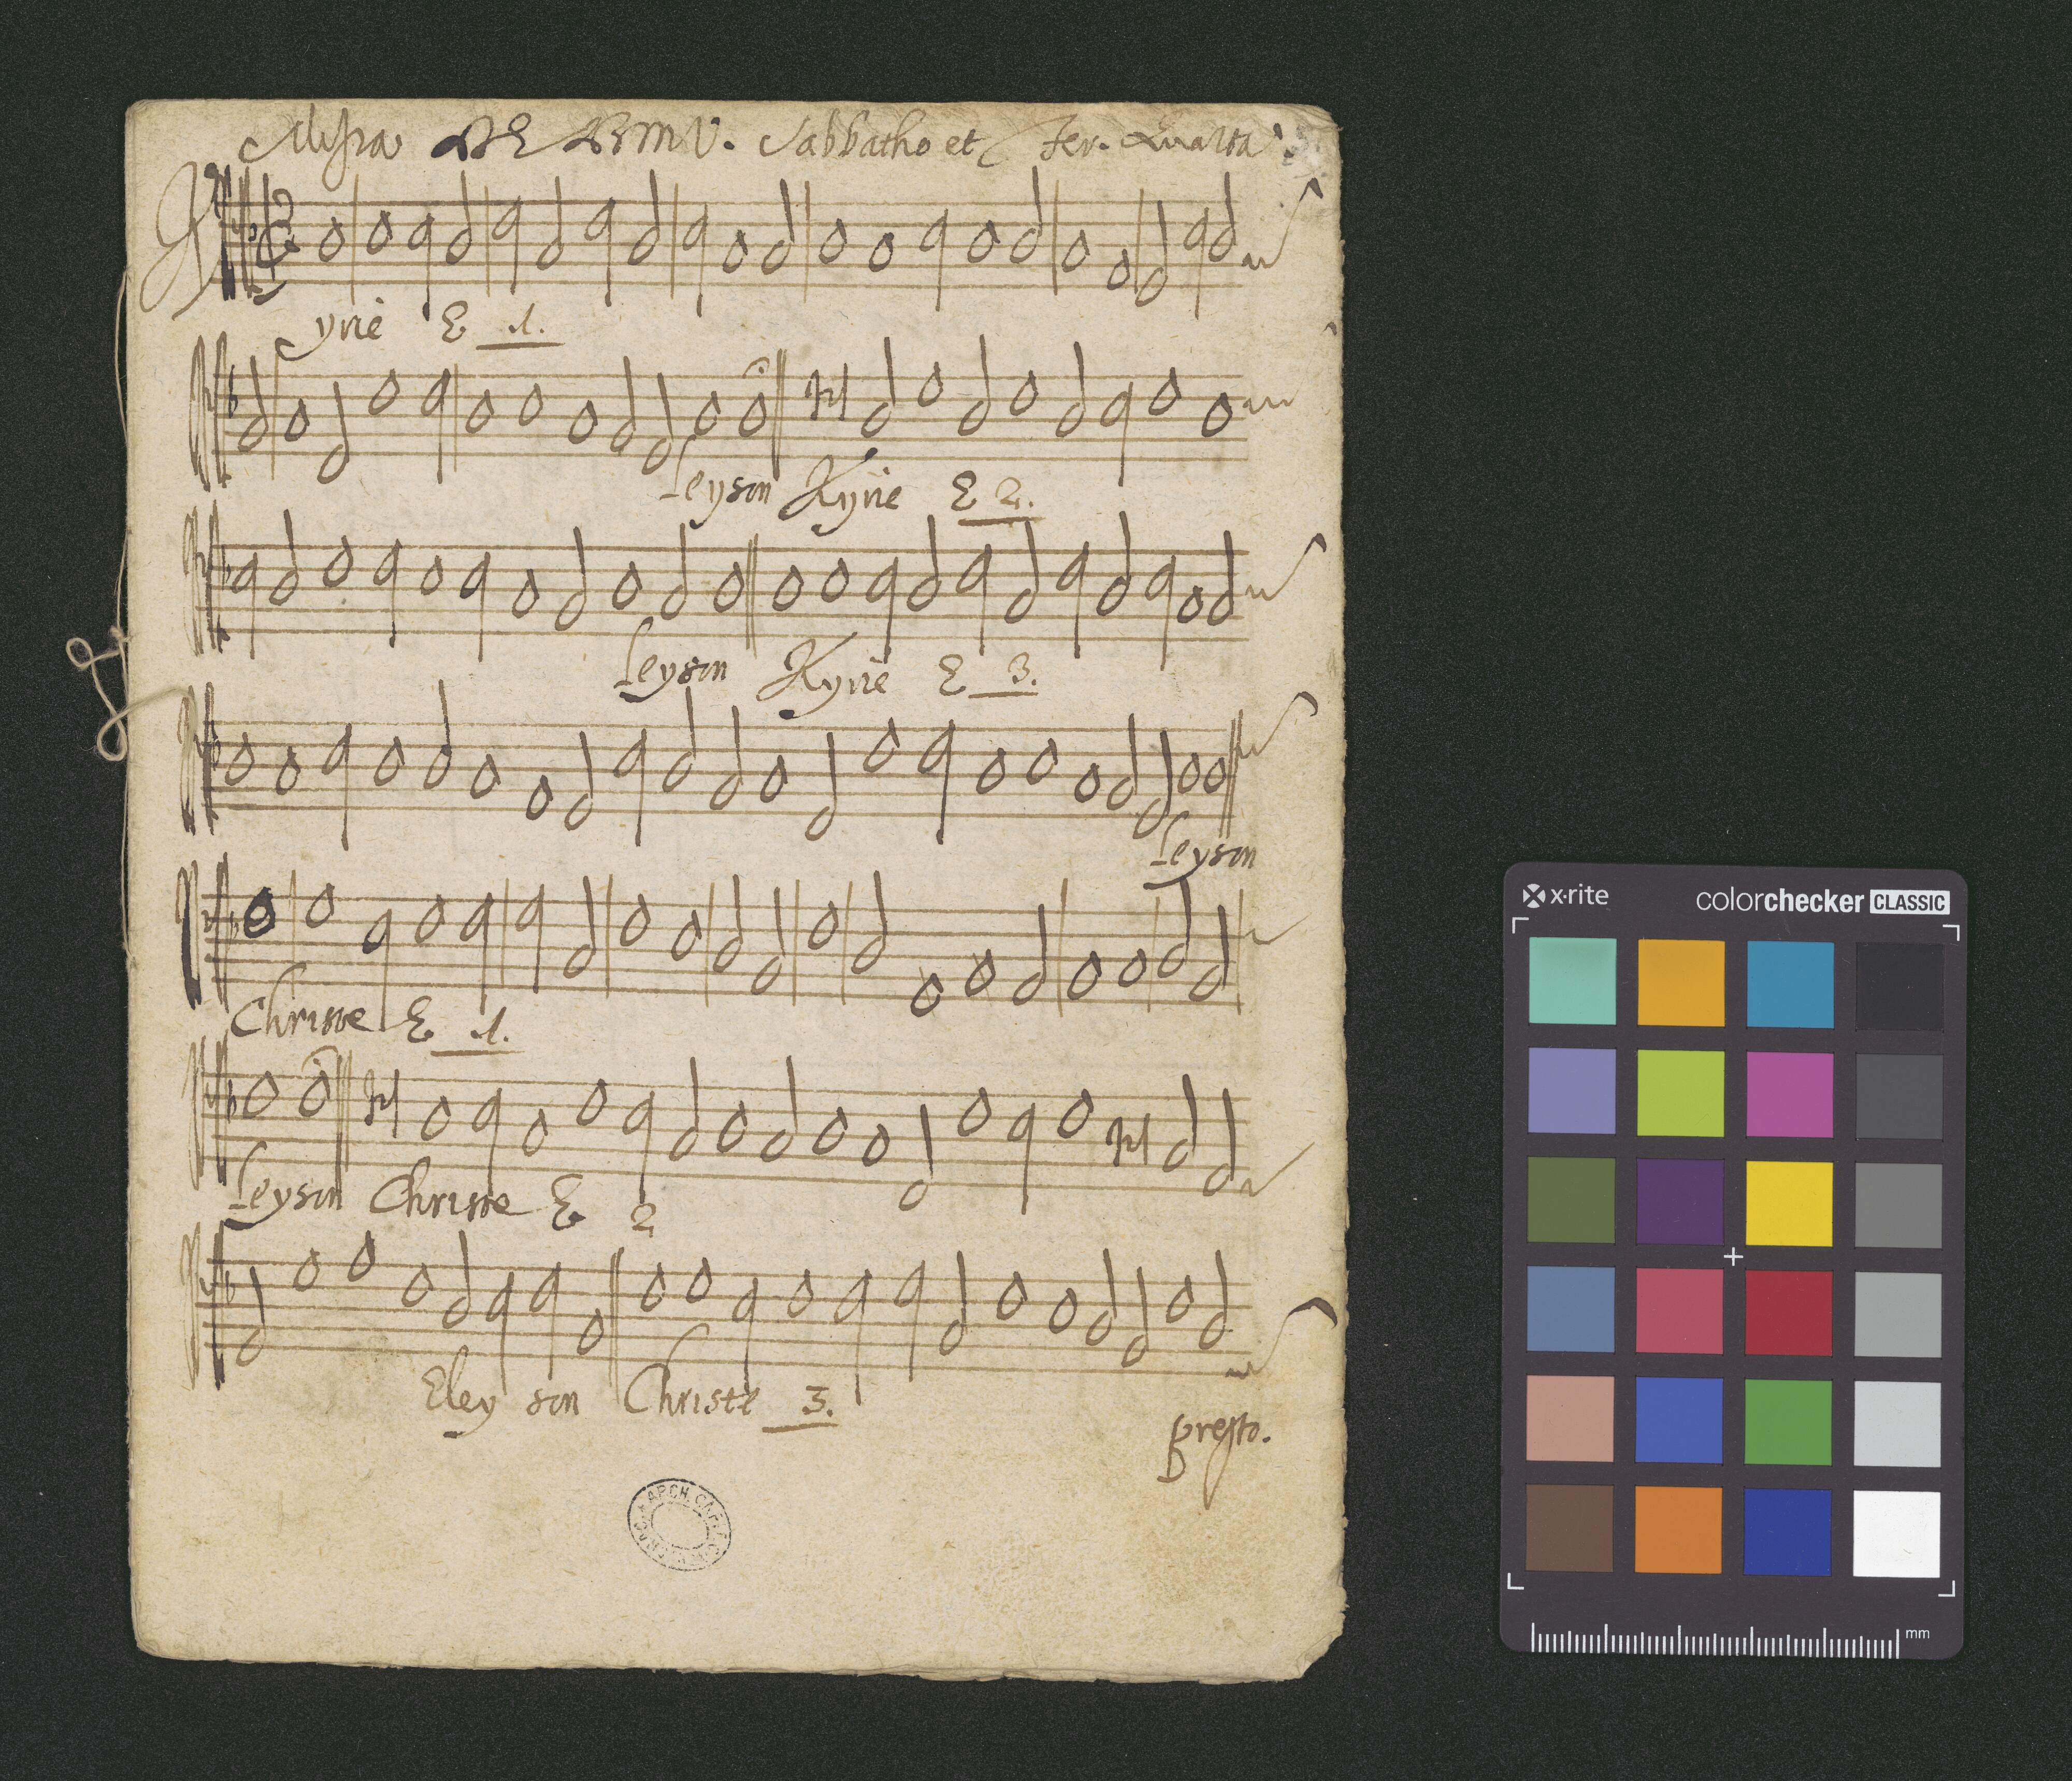 Missa DE BMV. Sabbatho et Fer. Quarta.
Kyrie E 1.
leyson Kyrie E 2.
leyson Kyrie E 3.
leyson
Christe E 1.
leyson Christe E 2
Eley son Christe 3.
presto.
ARCH. CAP.
x·rite colorchecker CLASSIC
mm